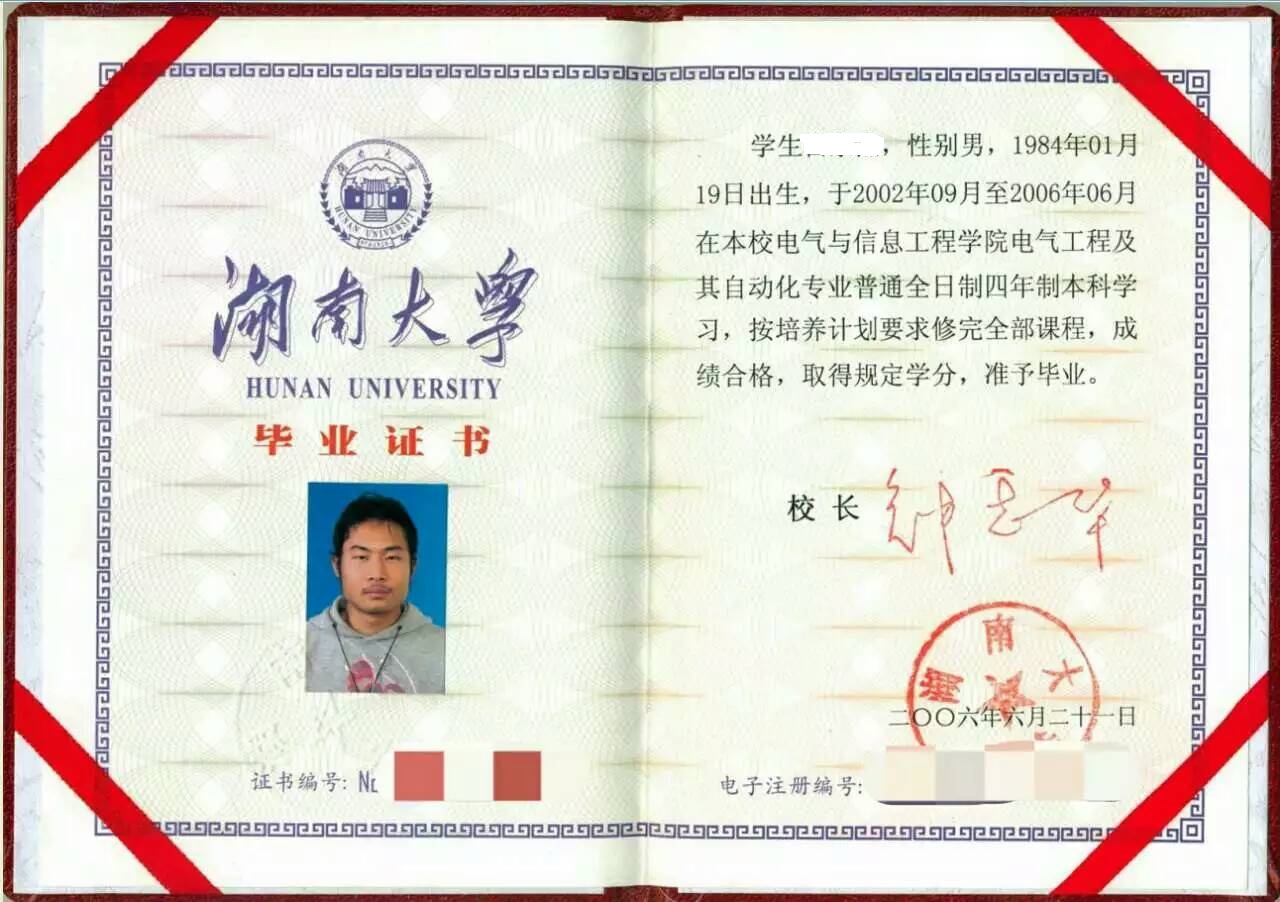 湖南大学
HUNAN UNIVERSITY
湖南大学
HUNAN UNIVERSITY
毕业证书
证书编号: №
学生 ，性别男，1984年01月
19日出生，于2002年09月至2006年06月
在本校电气与信息工程学院电气工程及
其自动化专业普通全日制四年制本科学
习，按培养计划要求修完全部课程，成
绩合格，取得规定学分，准予毕业。
校长 钟志华
湖南大
二〇〇六年六月二十一日
电子注册编号: